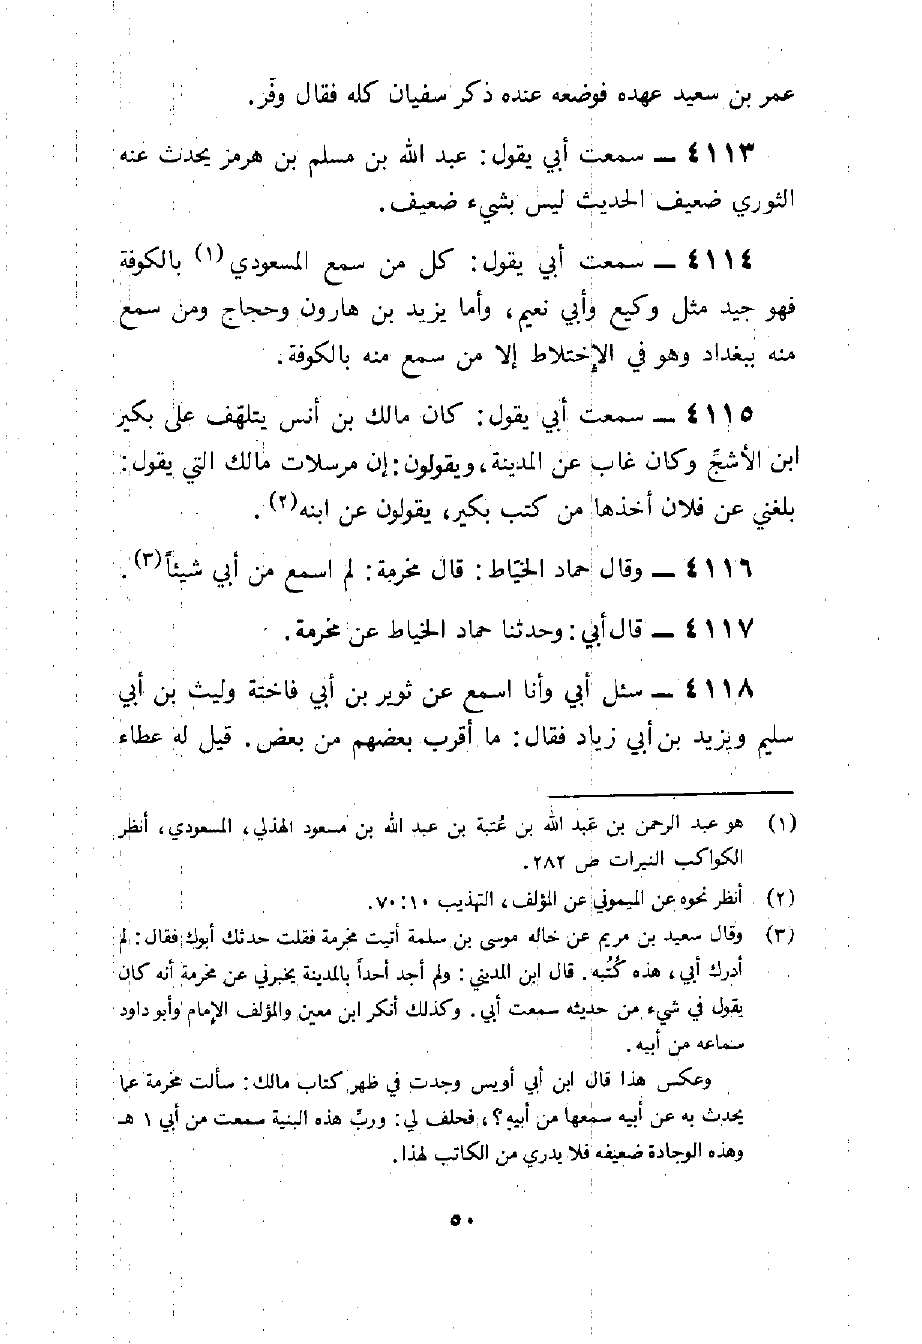 عمر بن سعيد عهده فوضعه عنده ذكر سفيان كله فقال وفّر.
٤١١٣ ـ سمعت أبي يقول: عبد الله بن مسلم بن هرمز يحدث عنه
الثوري ضعيف الحديث ليس بشيء ضعيف.
٤١١٤ ـ سمعت أبي يقول: كل من سمع المسعودي (١) بالكوفة
فهو جيد مثل وكيع وأبي نعيم، وأما يزيد بن هارون وحجاج ومن سمع
منه ببغداد وهو في الإختلاط إلا من سمع منه بالكوفة.
٤١١٥ ـ سمعت أبي يقول: كان مالك بن أنس يتلهّف على بكير
ابن الأشجّ وكان غاب عن المدينة، ويقولون: إن مرسلات مالك التي يقول:
بلغني عن فلان أخذها من كتب بكير، يقولون عن ابنه (٢).
٤١١٦ ـ وقال حماد الخيّاط: قال مخرمة: لم اسمع من أبي شيئاً (٣).
٤١١٧ ـ قال أبي: وحدثنا حماد الخياط عن مخرمة.
٤١١٨ ـ سئل أبي وأنا اسمع عن ثوير بن أبي فاختة وليث بن أبي
سليم ويزيد بن أبي زياد فقال: ما أقرب بعضهم من بعض. قيل له عطاء
(١) هو عبد الرحمن بن عبد الله بن عُتبة بن عبد الله بن مسعود الهذلي، المسعودي، أنظر
الكواكب النيرات ص ٢٨٢.
(٢) أنظر نحوه عن الميموني عن المؤلف، التهذيب ١٠: ٧٠.
(٣) وقال سعيد بن مريم عن خاله موسى بن سلمة أتيت مخرمة فقلت حدثك أبوك فقال: لم
أدرك أبي، هذه كُتُبه. قال ابن المديني: ولم أجد أحداً بالمدينة يخبرني عن مخرمة أنه كان
يقول في شيء من حديثه سمعت أبي. وكذلك أنكر ابن معين والمؤلف الإمام وأبو داود
سماعه من أبيه.
وعكس هذا قال ابن أبي أويس وجدت في ظهر كتاب مالك: سألت مخرمة عما
يحدث به عن أبيه سمعها من أبيه؟، فحلف لي: وربّ هذه البنية سمعت من أبي ١ هـ
وهذه الوجادة ضعيفه فلا يدري من الكاتب لهذا.
٥٠